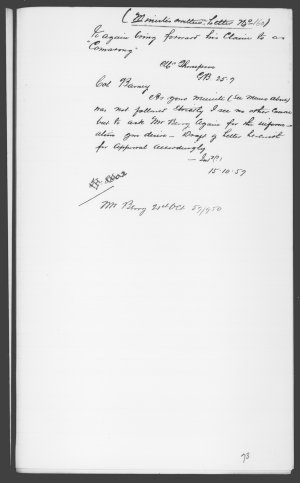 (Minutes on other Letter No 160)
To again bring forward his Claim to as
"Comarong"
Mr Thompson
GB. 25.9
Col Barney
As your minute (See Memo above)
was not followed literally I see no other Course
but to ask Mr Berry again for the inform-
ation you desire - Draft of Letter herewith
for Approval accordingly
15.10.59
Mr Berry 21st Oct 59/950
73